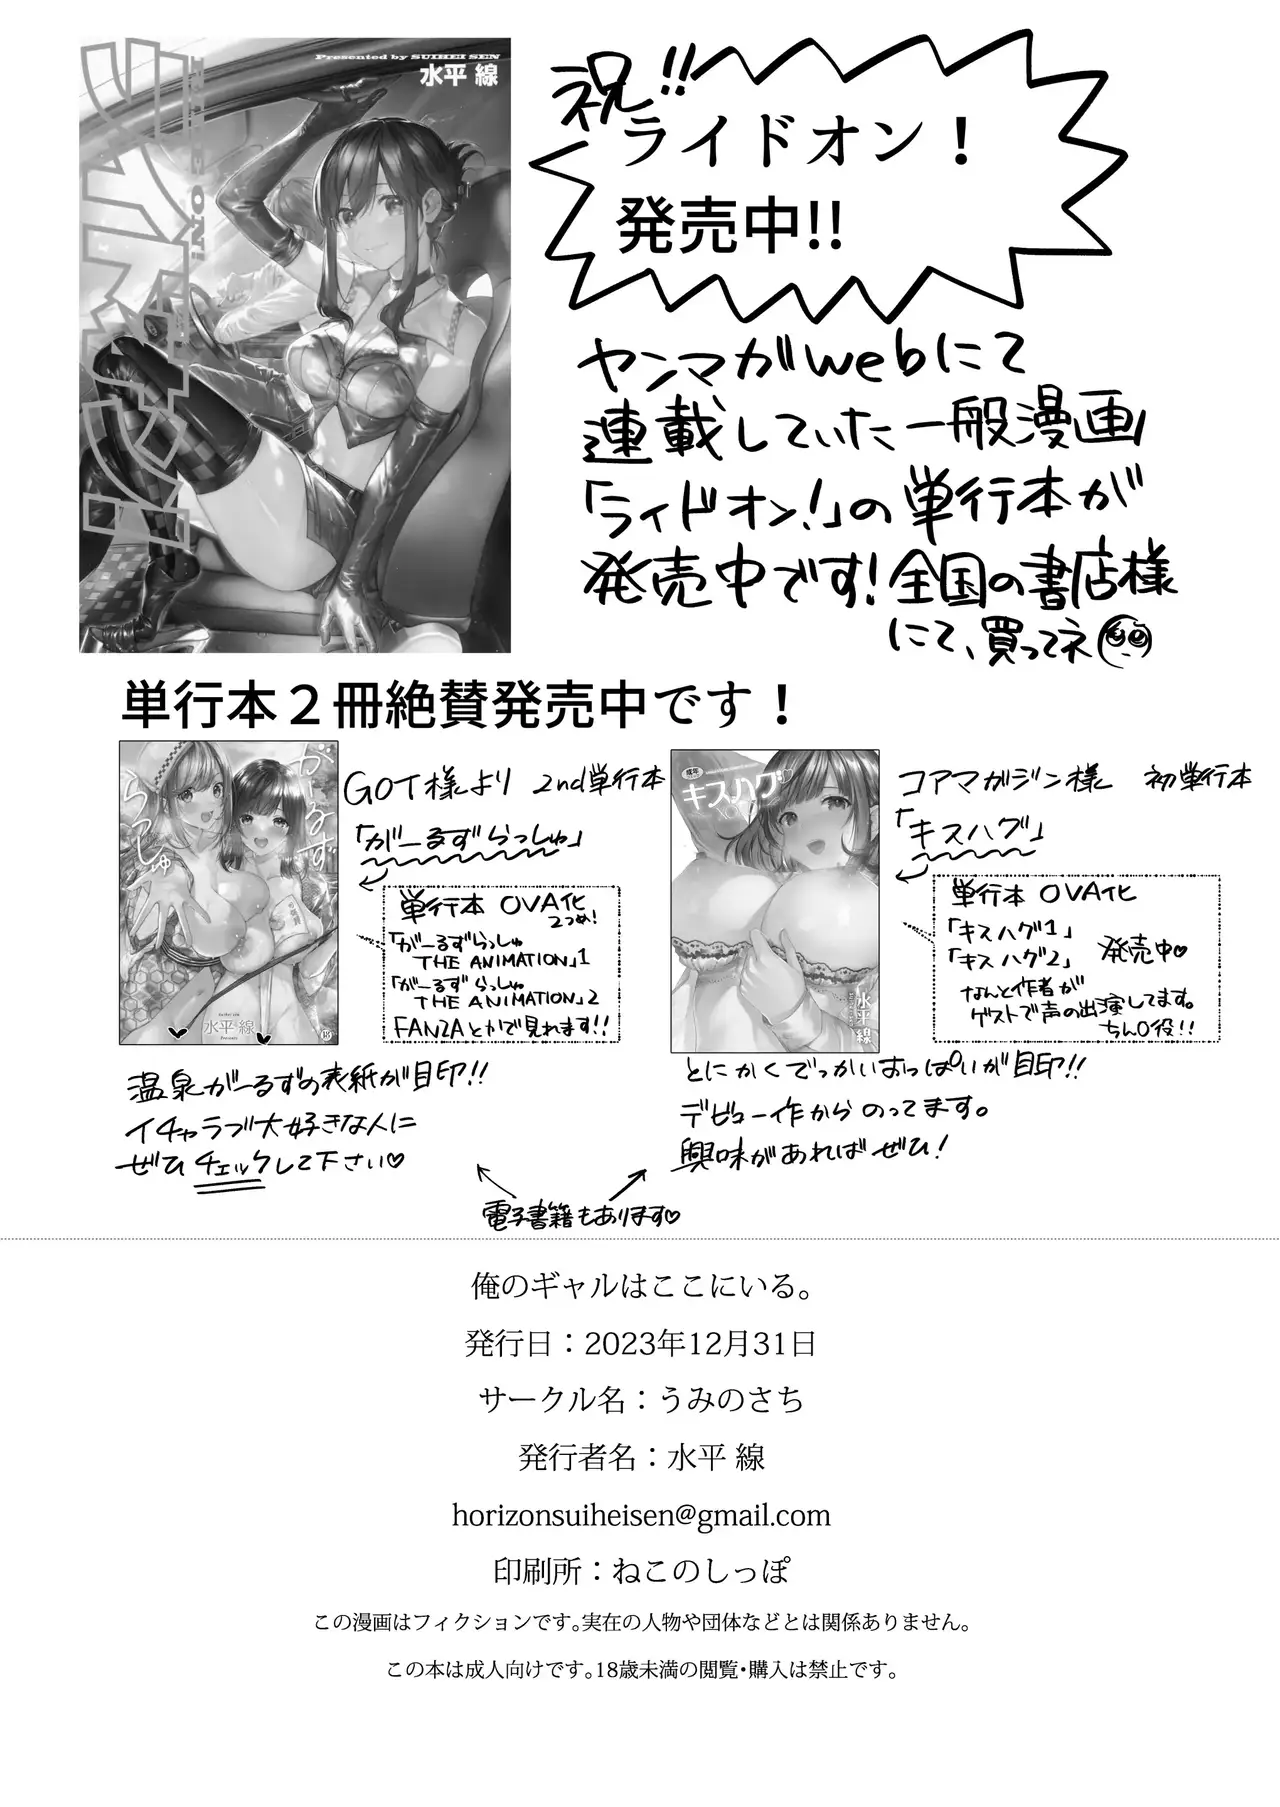 Presented by SUIHEI SEN
水平 線
RIDE ON!
ライドオン!
祝!!
ライドオン！
発売中!!
ヤンマガwebにて
連載していた一般漫画
「ライドオン!」の単行本が
発売中です!全国の書店様
にて、買ってネ
単行本２冊絶賛発売中です！
がーるず
らっしゅ
水平 線
GOT様より 2nd単行本
「がーるずらっしゅ」
単行本 OVA化
2つめ!
「がーるずらっしゅ
THE ANIMATION」1
「がーるずらっしゅ
THE ANIMATION」2
FANZAとかで見れます!!
温泉がーるずの表紙が目印!!
イチャラブ大好きな人に
ぜひチェックして下さい♡
成年
キスハグ
水平 線
コアマガジン様 初単行本
「キスハグ」
単行本 OVA化
「キスハグ1」
「キスハグ2」 発売中♡
なんと作者が
ゲストで声の出演してます。
ちん○役!!
とにかくでっかいおっぱいが目印!!
デビュー作からのってます。
興味があればぜひ!
電子書籍もあります♡
俺のギャルはここにいる。
発行日：2023年12月31日
サークル名：うみのさち
発行者名：水平 線
horizonsuiheisen@gmail.com
印刷所：ねこのしっぽ
この漫画はフィクションです。実在の人物や団体などとは関係ありません。
この本は成人向けです。18歳未満の閲覧・購入は禁止です。